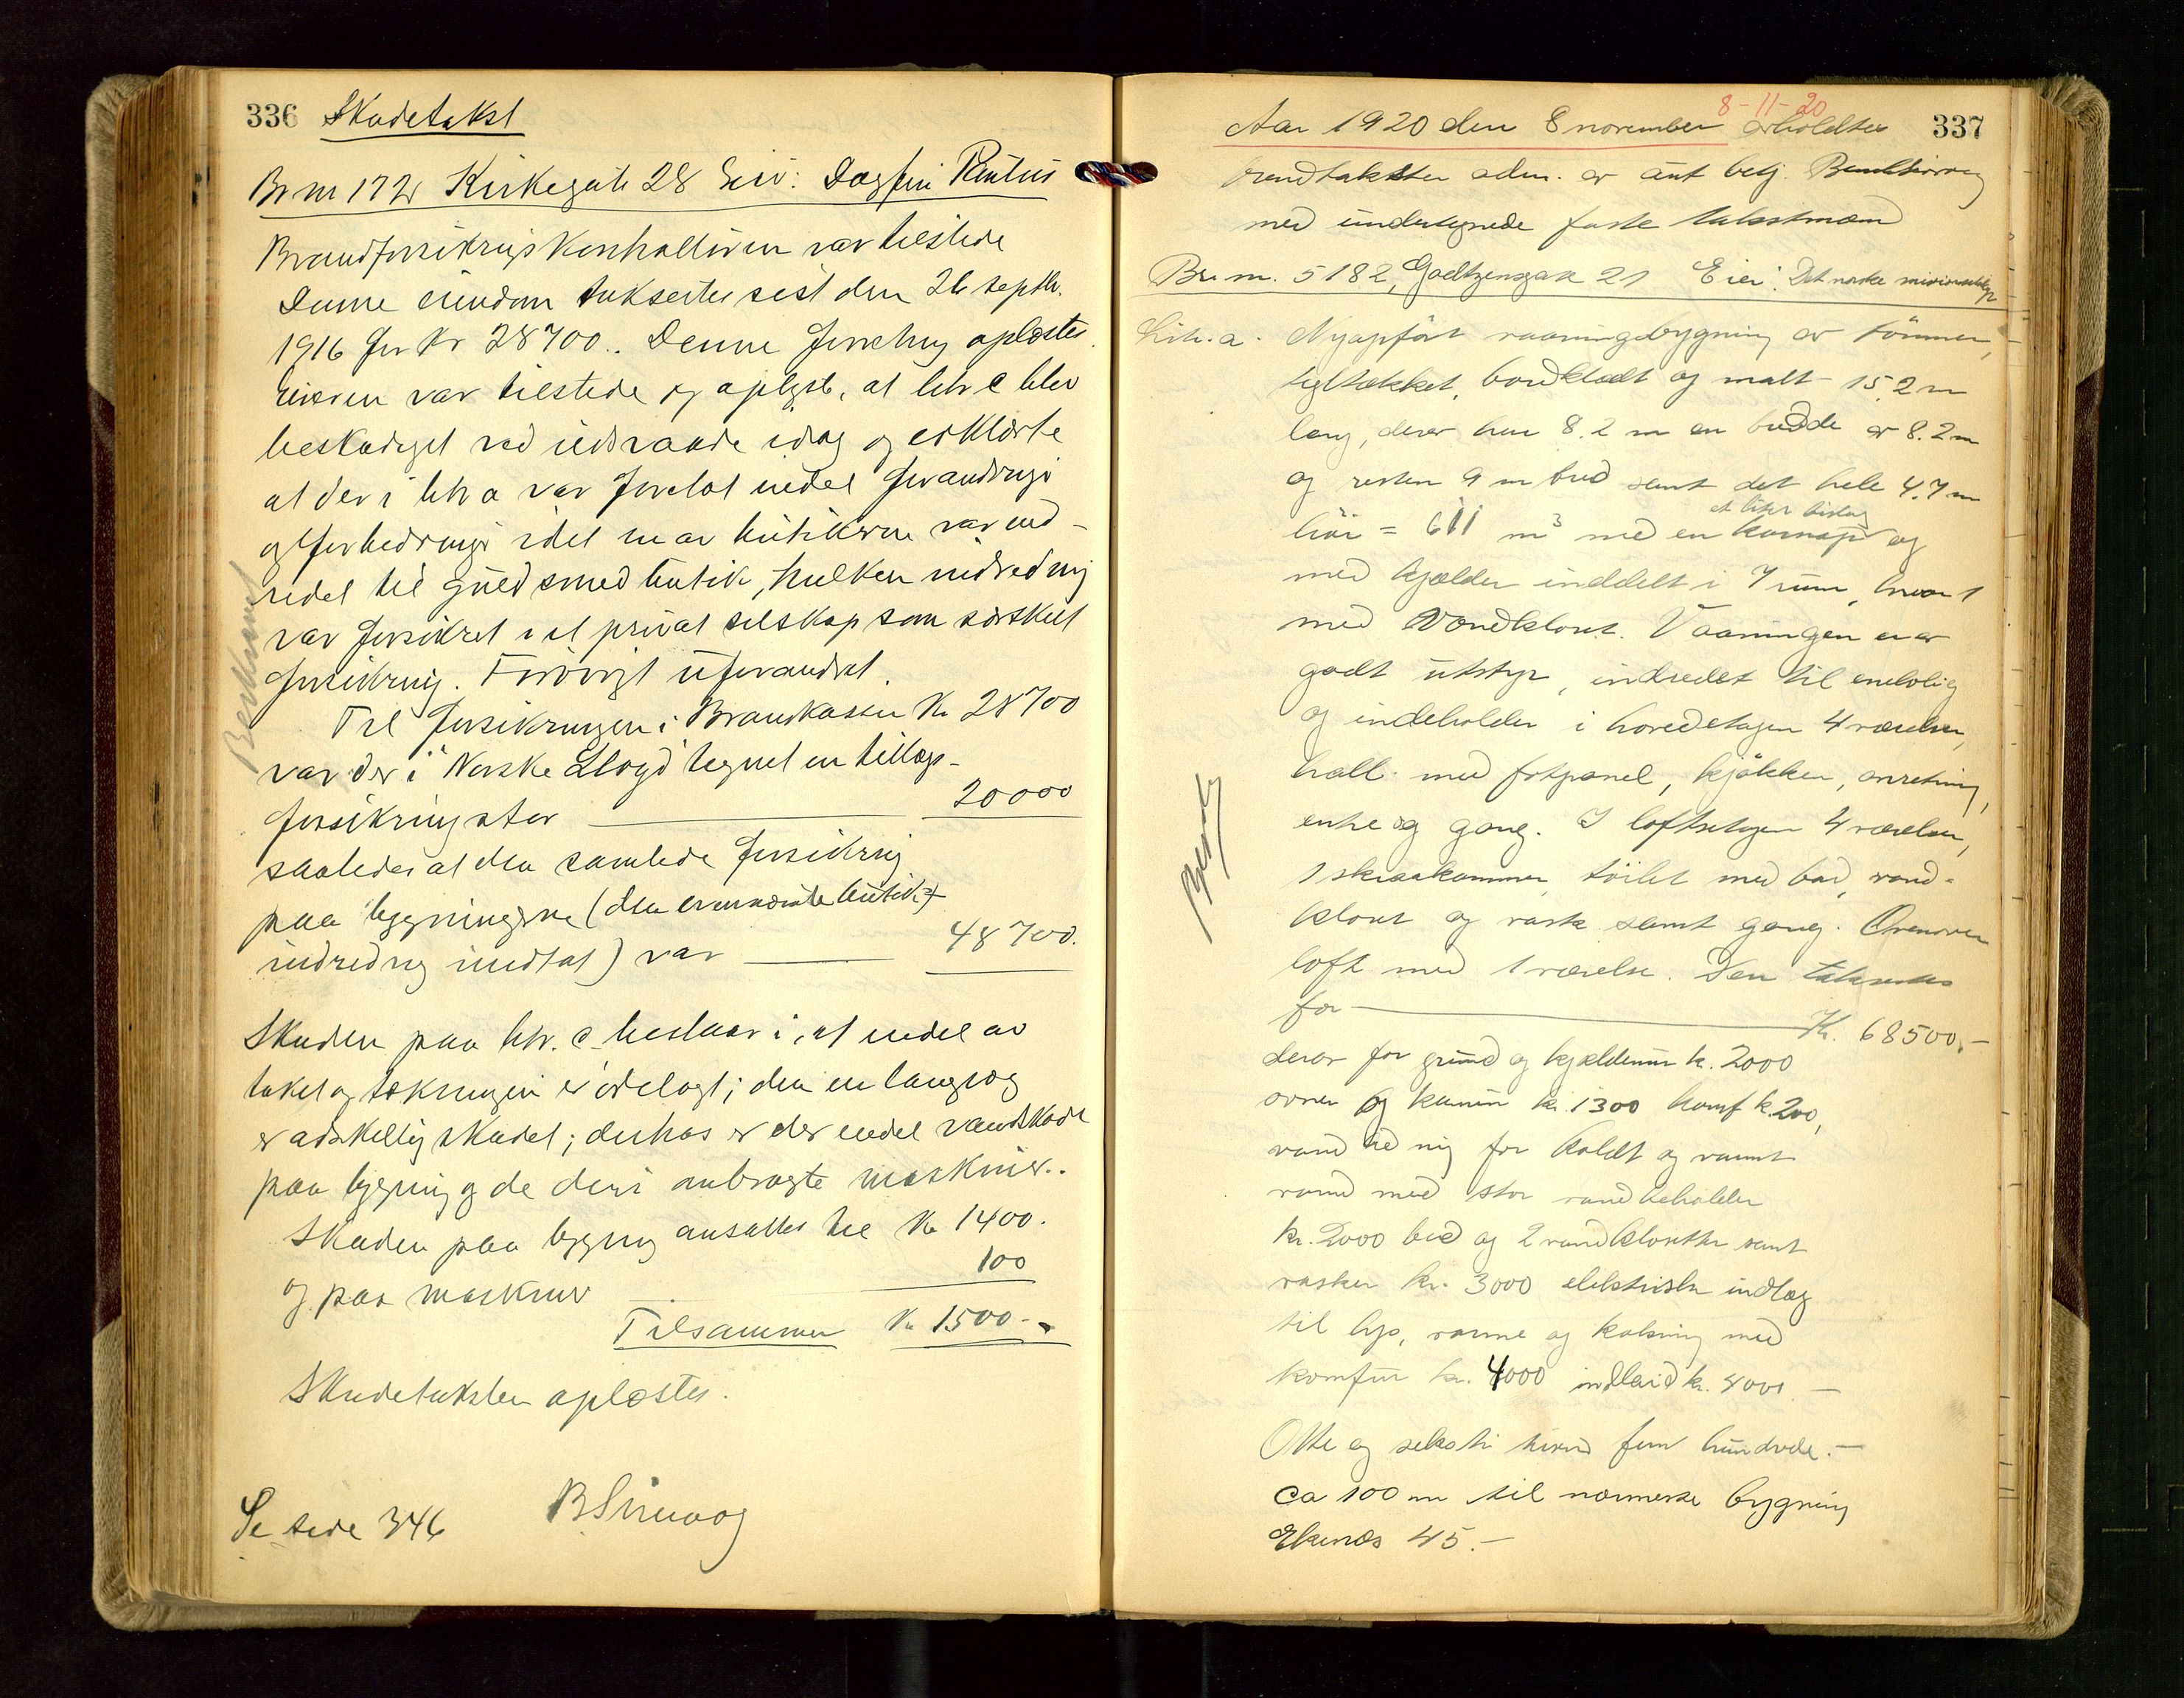 336 Skadetakst
Br nr 172 Kirkegate 28 Eier: Dagfin
Brandforsikringskontrolløren var tilstede
Denne eiendom takseertes sist den 26 septbr.
1916 for Kr 28700.. Denne forretning oplæstes.
Eieren var tilstede og oplyste, at litr c blev
beskadiget ved ildsvaade idag og erklærte
at der i litr a var foretat endel forandringer
og forbedringer idet en av butikkerne var ind-
redet til guldsmedbutik, hvilken indredning
var forsikret i et privat selskap som særskilt
forsikring. Forövrigt uforandret.
Til forsikringen i Brandkassen Kr 28700
var der i "Norske Lloyd" tegnet en tillægs-
forsikring stor 20000
saaledes at den samlede forsikring
paa bygningerne (den ovennævnte butik-
indredning undtat) var 48700.
Skaden paa litr. c bestaar i, at endel av
taket og tækningen er ödelagt; den ene langvæg
er adskillig skadet; derhos er der endel vandskade
paa bygning og de deri anbragte maskiner..
Skaden paa bygning ansattes til Kr 1400.
og paa maskiner 100
Tilsammen Kr 1500.-
Skadetaksten oplæstes.
Se side 346
8-11-20
Aar 1920 den 8 november avholdtes 337
brandtakster adm. av aut betj.
med undertegnede faste takstmænd
Br. nr. 5182, 21 Eier: Det norske misionsselskap
Litr. a. Nyopfört vaaningsbygning av tömmer,
tegltækket, bordklædt og malt 15,2 m
lang, derav har 8.2 m en bredde av 8.2 m
og resten 9 m bred samt det hele 4,7 m
et litet bislag
höi = 611 m³ med en karnap og
med kjælder inddelt i 7 rum, hvorav 1
med vandklosset. Vaaningen er av
godt utstyr, indredet til enebolig
og indeholder i hovedetagen 4 værelser,
hall med fotpanel, kjökken, anretning,
entre og gang. I loftsetagen 4 værelser,
1 skraakammer, toilet med bad, vand-
kloset og vask samt gang. Ovenover
loft med 1 værelse. Den takseres
for Kr. 68500.-
derav for grund og kjældermur kr. 2000
ovner og kamin kr. 1300 komf k. 200,
vandledning for koldt og varmt
vand med stor vandbeholder
kr. 2000 bad og 2 vandklosetter samt
vasker kr. 3000 elektrisk indlæg
til lys, varme og kokning med
komfur kr. 4000 kr. 4000.-
Otte og seksti tusind fem hundrede.-
Ca 100 m til nærmeste bygning
Ekenæs 45.-